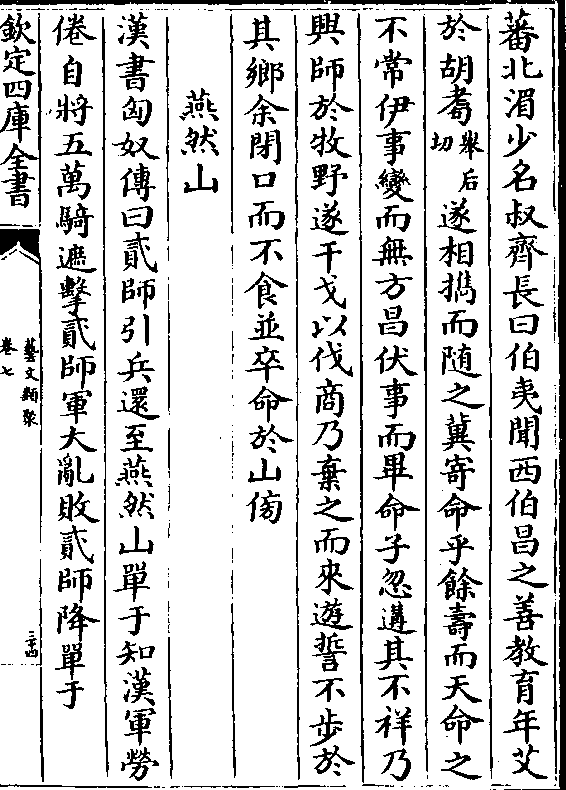 蕃北湄少名叔齊長曰伯夷聞西伯昌之善教育年艾
於胡耇舉后切遂相携而随之冀寄命乎餘壽而天命之
不常伊事變而無方昌伏事而畢命子忽遘其不祥乃
興師於牧野遂干戈以伐商乃棄之而來遊誓不步於
其鄉余閉口而不食並卒命於山傍
燕然山
漢書匈奴傳曰貳師引兵還至燕然山單于知漢軍勞
倦自將五萬騎遮擊貳師軍大亂敗貳師降單于
欽定四庫全書
藝文類聚
卷七
二十四